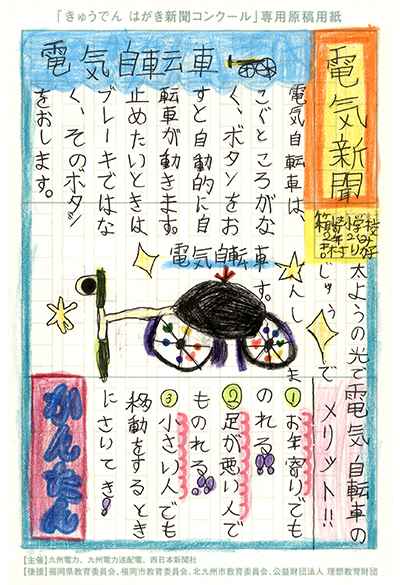 「きゅうでん はがき新聞コンクール」専用原稿用紙
電気新聞
電気自転車
電気自転車は、
こぐところがな
く、ボタンをお
すと自動的に自
転車が動きます。
止めたいときは
ブレーキではな
く、そのボタン
をおします。
太ようの光で
じゅうで
んしま
す。
電気自転車
電気自転車の
メリット!!
①お年寄りでも
のれる
②足が悪い人で
ものれる
③小さい人でも
移動をするとき
にさいてき
かんたん
【主催】九州電力、九州電力送配電、西日本新聞社
【後援】福岡県教育委員会、福岡市教育委員会、北九州市教育委員会、公益財団法人 理想教育財団